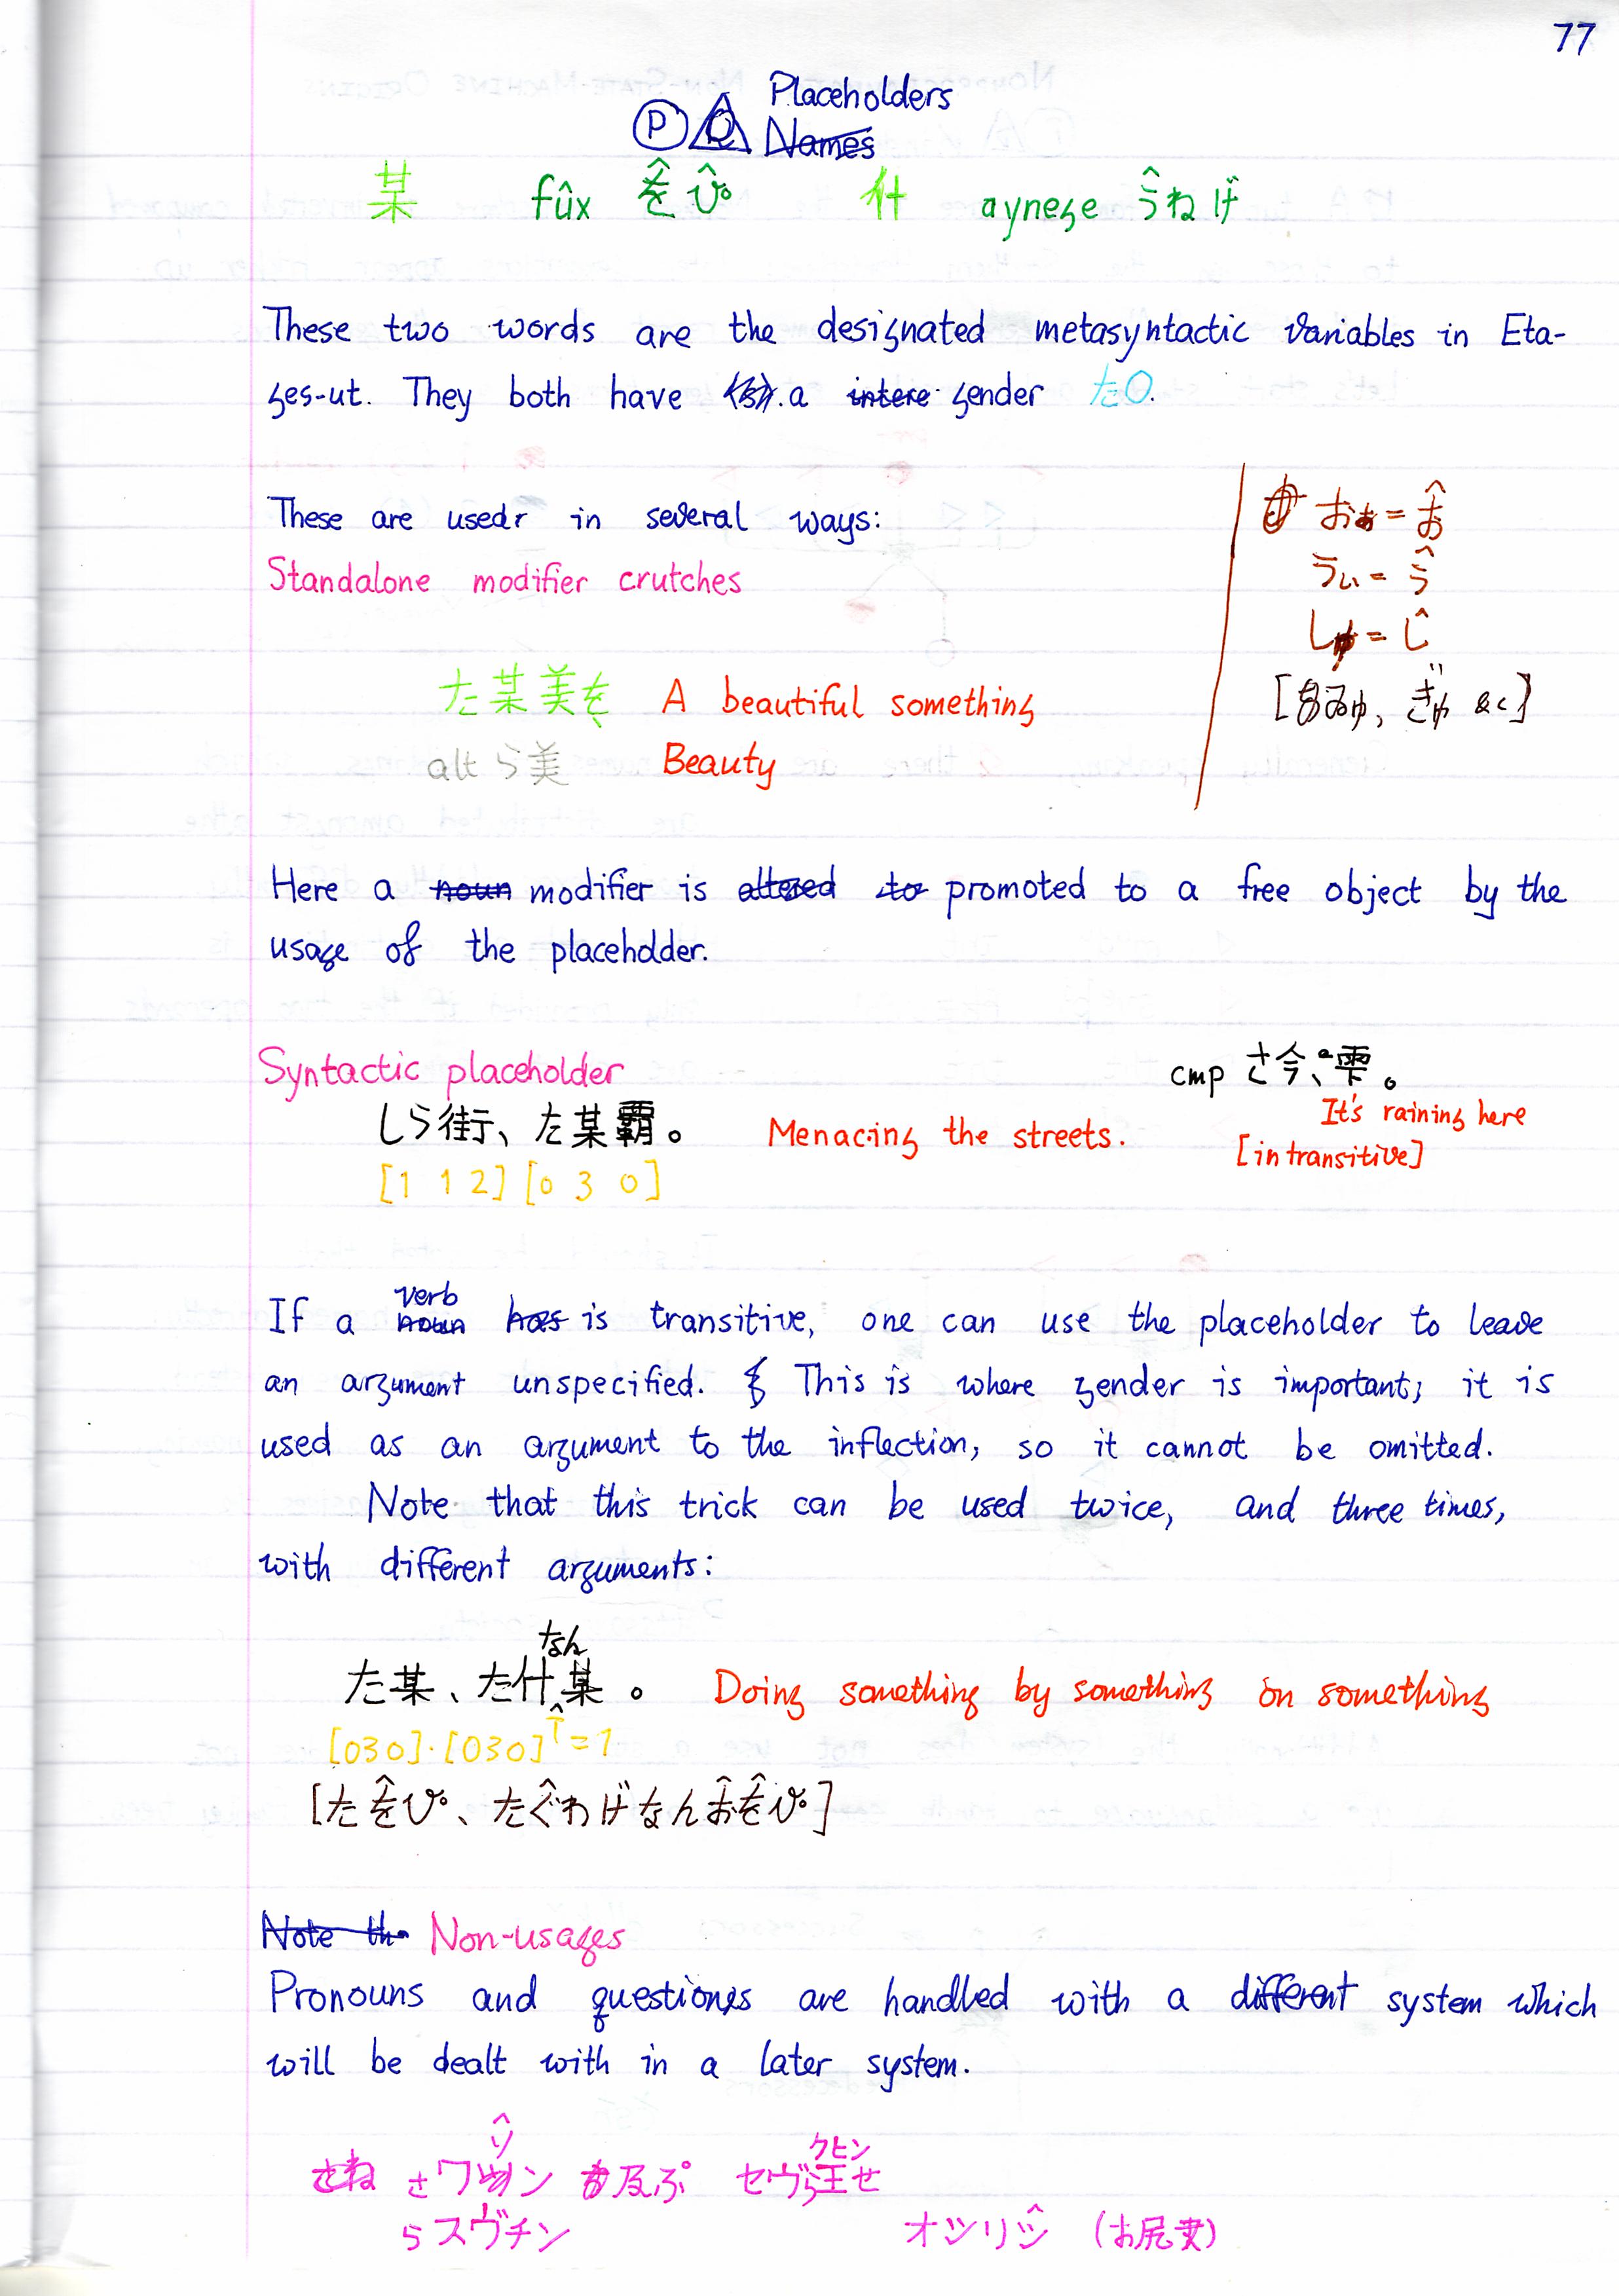 77
Placeholders
P Q Names
某 fûx を̂ぴ 什 aynege う̂ねげ
These two words are the designated metasyntactic variables in Eta-
ges-ut. They both have a intere gender た0.
These are used in several ways:
Standalone modifier crutches
おぁ = お̂
うぃ = う̂
しゅ = し̂
た某美を A beautiful something
alt ら美 Beauty
Here a noun modifier is altered to promoted to a free object by the
usage of the placeholder.
Syntactic placeholder
cmp さ今、雫。
It's raining here
[intransitive]
しら街、た某覇。 Menacing the streets.
[1 1 2] [0 3 0]
verb
If a noun has is transitive, one can use the placeholder to leave
an argument unspecified. This is where gender is important; it is
used as an argument to the inflection, so it cannot be omitted.
Note that this trick can be used twice, and three times,
with different arguments:
なん
た某、た什某。 Doing something by something on something
[030]·[030]ᵀ = 1
[たを̂ぴ、たぐ̂わげなんお̂を̂ぴ]
Note the Non-usages
Pronouns and questions are handled with a different system which
will be dealt with in a later system.
クヒン
セヴら王せ
らスヴチン
オツリツ̂ (お尻麦)